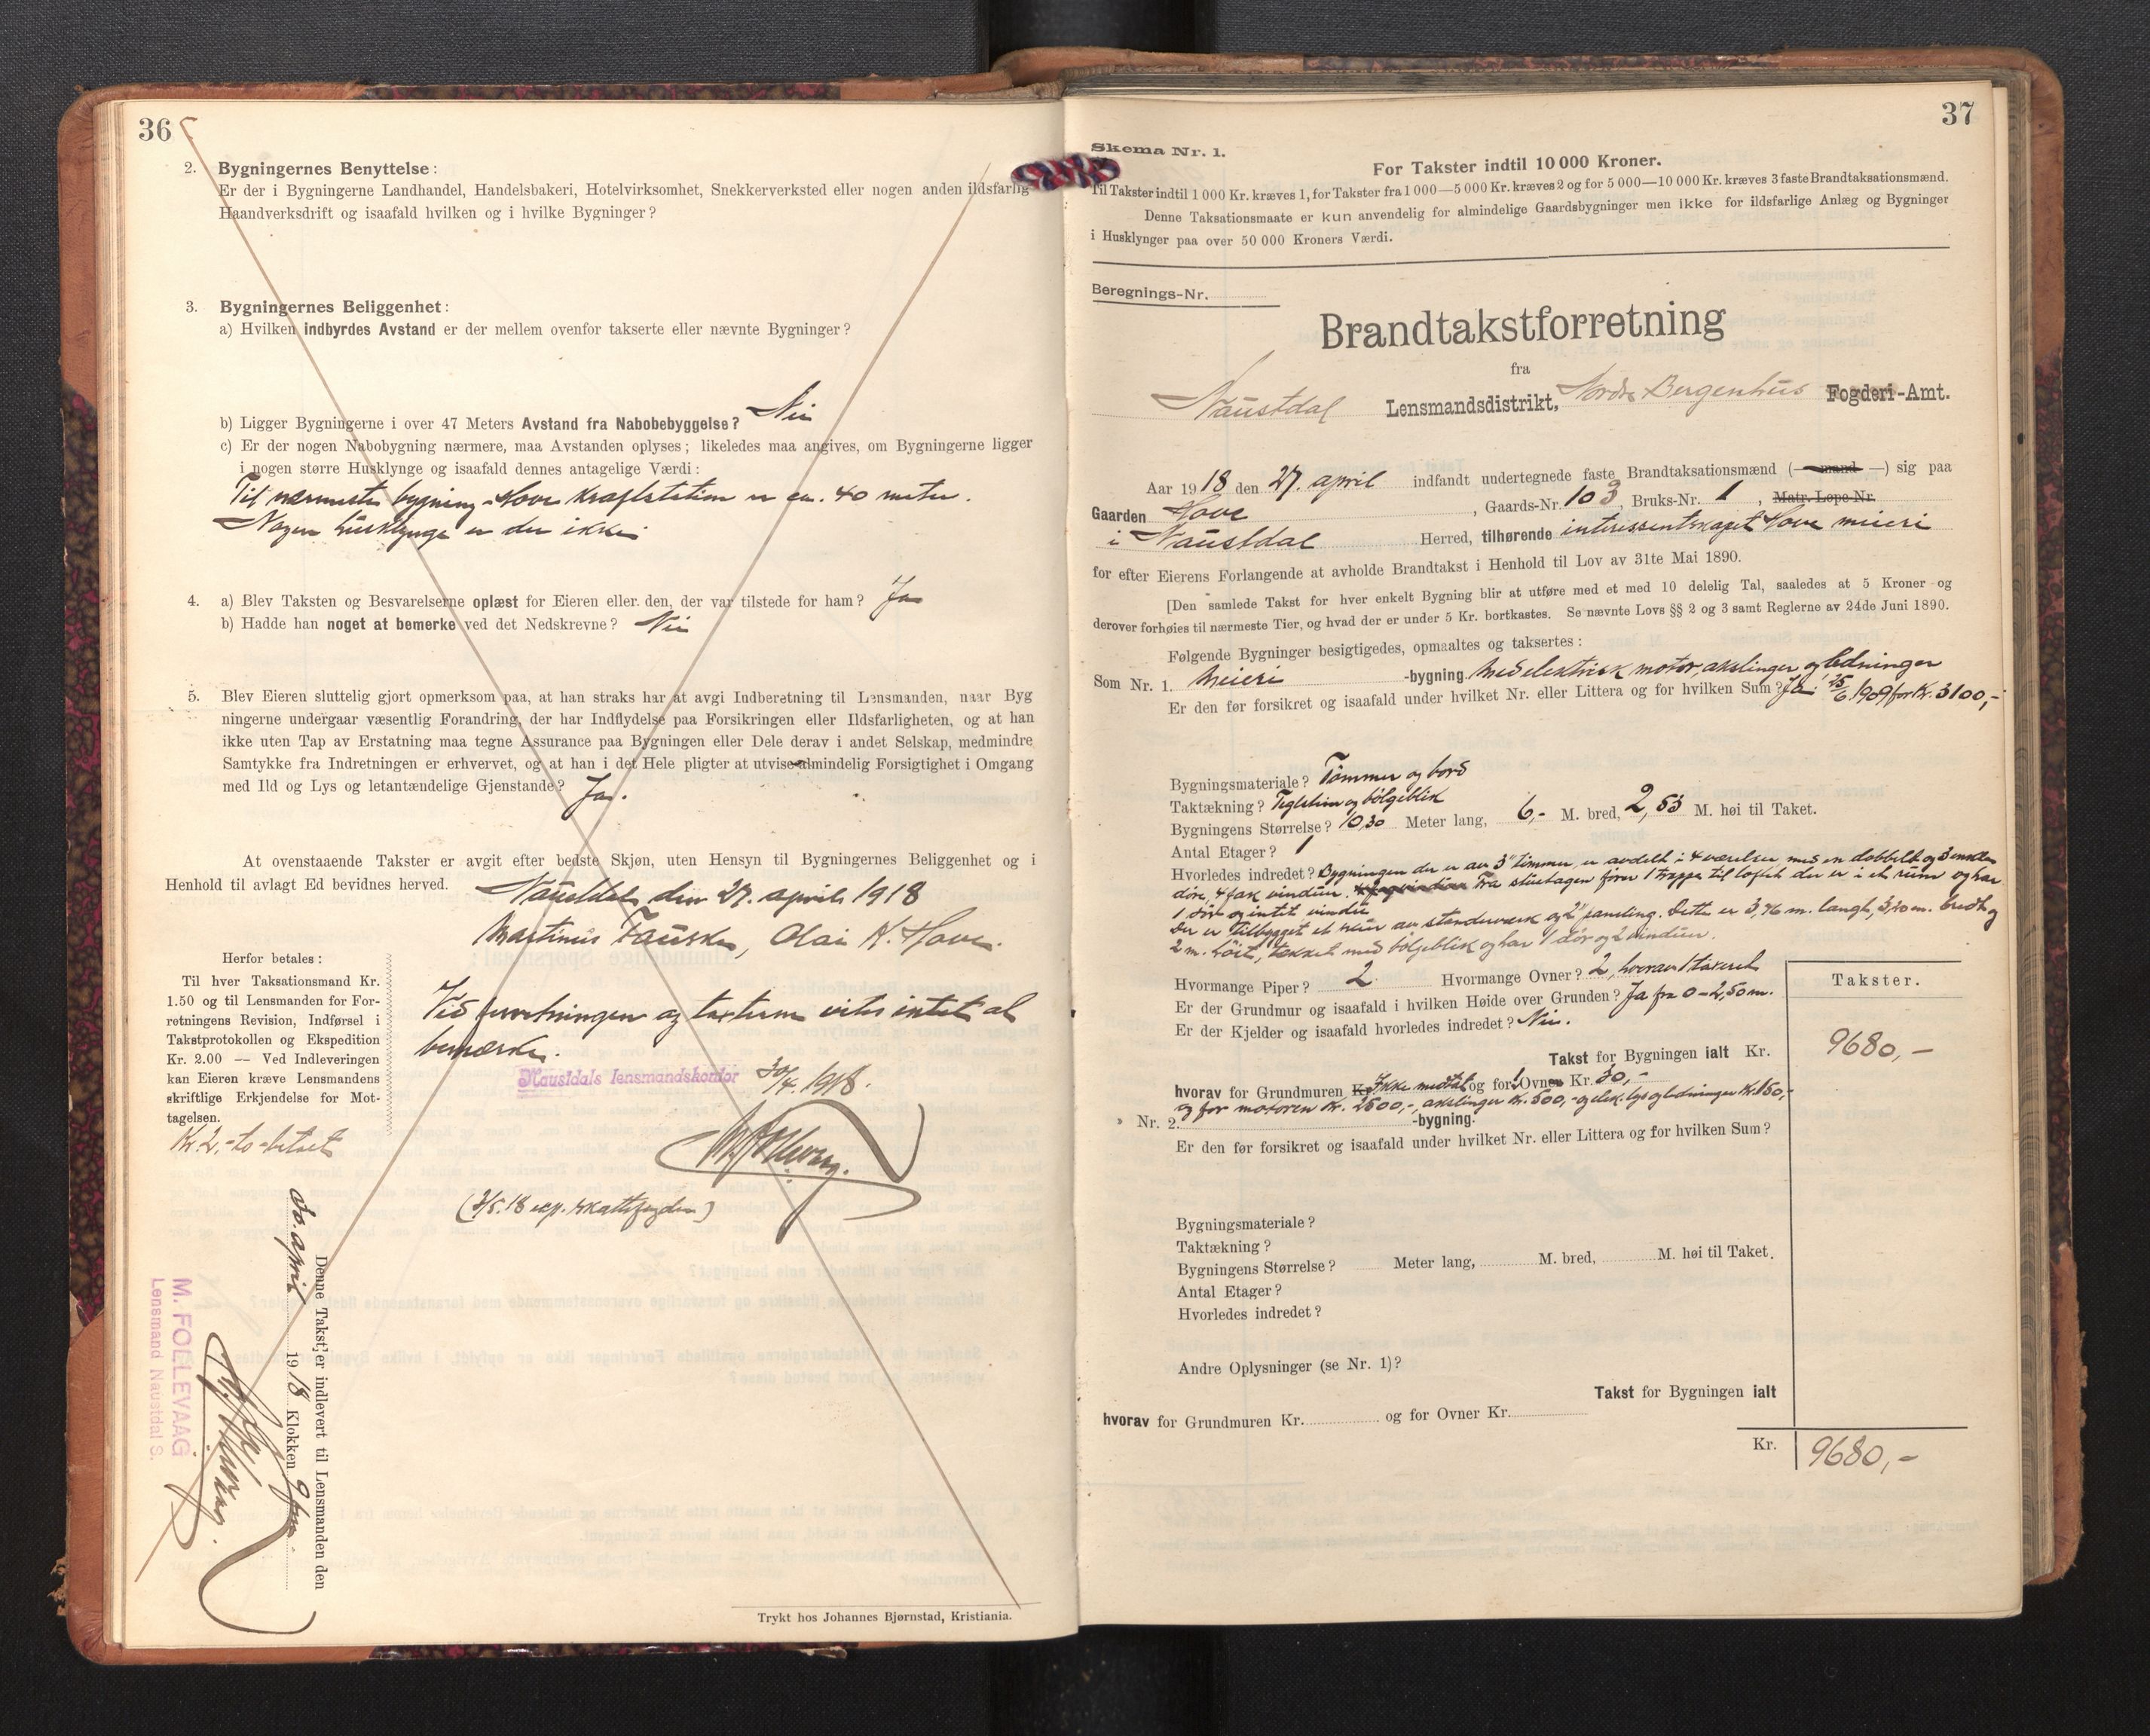 36
2. Bygningernes Benyttelse:
Er der i Bygningerne Landhandel, Handelsbakeri, Hotelvirksomhet, Snekkerverksted eller nogen anden ildsfarlig
Haandverksdrift og isaafald hvilken og i hvilke Bygninger?
3. Bygningernes Beliggenhet:
a) Hvilken indbyrdes Avstand er der mellem ovenfor takserte eller nævnte Bygninger?
b) Ligger Bygningerne i over 47 Meters Avstand fra Nabobebyggelse? Nei
c) Er der nogen Nabobygning nærmere, maa Avstanden oplyses; likeledes maa angives, om Bygningerne ligger
i nogen større Husklynge og isaafald dennes antagelige Værdi:
Til nærmeste bygning - Hove kraftstation er ca. 40 meter.
Nogen husklynge er der ikke.
4. a) Blev Taksten og Besvarelserne oplæst for Eieren eller den, der var tilstede for ham? Ja
b) Hadde han noget at bemerke ved det Nedskrevne? Nei
5. Blev Eieren sluttelig gjort opmerksom paa, at han straks har at avgi Indberetning til Lensmanden, naar Byg
ningerne undergaar væsentlig Forandring, der har Indflydelse paa Forsikringen eller Ildsfarligheten, og at han
ikke uten Tap av Erstatning maa tegne Assurance paa Bygningen eller Dele derav i andet Selskap, medmindre
Samtykke fra Indretningen er erhvervet, og at han i det Hele pligter at utvise almindelig Forsigtighet i Omgang
med Ild og Lys og letantændelige Gjenstande? Ja.
At ovenstaaende Takster er avgit efter bedste Skjøn, uten Hensyn til Bygningernes Beliggenhet og i
Henhold til avlagt Ed bevidnes herved.
Naustdal den 27. april 1918
Martinus Tauske, Olai K. Hove.
Herfor betales:
Til hver Taksationsmand Kr.
1.50 og til Lensmanden for For-
retningens Revision, Indførsel i
Takstprotokollen og Ekspedition
Kr. 2.00 — Ved Indleveringen
kan Eieren kræve Lensmandens
skriftlige Erkjendelse for Mot-
tagelsen.
Kr. 2,- to - betalt
Ved forretningen og taxterne vites intet at
bemerke.
Naustdals lensmandskontor 30/4. 1918.
(3/5.18 exp. skattefogden)
Denne Takst er indlevert til Lensmanden den
30. april 1918 Klokken 9 fm.
M. FOLLEVAAG
Lensmand Naustdal S.
Trykt hos Johannes Bjørnstad, Kristiania.
37
Skema Nr. 1.
For Takster indtil 10 000 Kroner.
Til Takster indtil 1 000 Kr. kræves 1, for Takster fra 1 000—5 000 Kr. kræves 2 og for 5 000—10 000 Kr. kræves 3 faste Brandtaksationsmænd.
Denne Taksationsmaate er kun anvendelig for almindelige Gaardsbygninger men ikke for ildsfarlige Anlæg og Bygninger
i Husklynger paa over 50 000 Kroners Værdi.
Beregnings-Nr.
Brandtakstforretning
fra
Naustdal Lensmandsdistrikt, Nordre Bergenhus Fogderi-Amt.
Aar 1918 den 27. april indfandt undertegnede faste Brandtaksationsmænd (—mand—) sig paa
Gaarden Hove, Gaards-Nr. 103, Bruks-Nr. 1, Matr. Løpe-Nr.
i Naustdal Herred, tilhørende interessentskapet Hove meieri
for efter Eierens Forlangende at avholde Brandtakst i Henhold til Lov av 31te Mai 1890.
[Den samlede Takst for hver enkelt Bygning blir at utføre med et med 10 delelig Tal, saaledes at 5 Kroner og
derover forhøies til nærmeste Tier, og hvad der er under 5 Kr. bortkastes. Se nævnte Lovs §§ 2 og 3 samt Reglerne av 24de Juni 1890.
Følgende Bygninger besigtigedes, opmaaltes og taksertes:
Som Nr. 1. Meieri -bygning. med elektrisk motor, akslinger og ledninger
Er den før forsikret og isaafald under hvilket Nr. eller Littera og for hvilken Sum? Ja. 25/6 1909 for Kr. 3100,-
Bygningsmateriale? Tømmer og bord
Taktækning? Teglsten og bølgeblik
Bygningens Størrelse? 10,30 Meter lang, 6,- M. bred, 2,53 M. høi til Taket.
Antal Etager? 1
Hvorledes indredet? Bygningen der er av 3" tømmer, er avdelt i 4 værelser med en dobbelt og 3 enkelte
døre, 4 fak vinduer. Fra stueetagen fører 1 trappe til loftet der er i et rum og har
1 dør og intet vindu
Der er tilbygget et skur av standerverk og 2" paneling. Dette er 3,76 m. langt, 3,20 m. bredt og
2 m. høit, tækket med bølgeblik og har 1 dør og 2 vinduer.
Hvormange Piper? 2 Hvormange Ovner? 2, hvorav 1 taxeret
Er der Grundmur og isaafald i hvilken Høide over Grunden? Ja fra 0-2,50 m.
Er der Kjelder og isaafald hvorledes indredet? Nei.
Takster.
Takst for Bygningen ialt Kr. 9680,-
hvorav for Grundmuren Kr. Ikke medtat og for 1 Ovner Kr. 30,-
og for motoren Kr. 2500,-, akslinger Kr. 500,- og elek. lys og ledninger Kr. 150,-
» Nr. 2. -bygning.
Er den før forsikret og isaafald under hvilket Nr. eller Littera og for hvilken Sum?
Bygningsmateriale?
Taktækning?
Bygningens Størrelse? Meter lang, M. bred, M. høi til Taket.
Antal Etager?
Hvorledes indredet?
Andre Oplysninger (se Nr. 1)?
Takst for Bygningen ialt
hvorav for Grundmuren Kr. og for Ovner Kr.
Kr. 9680,-